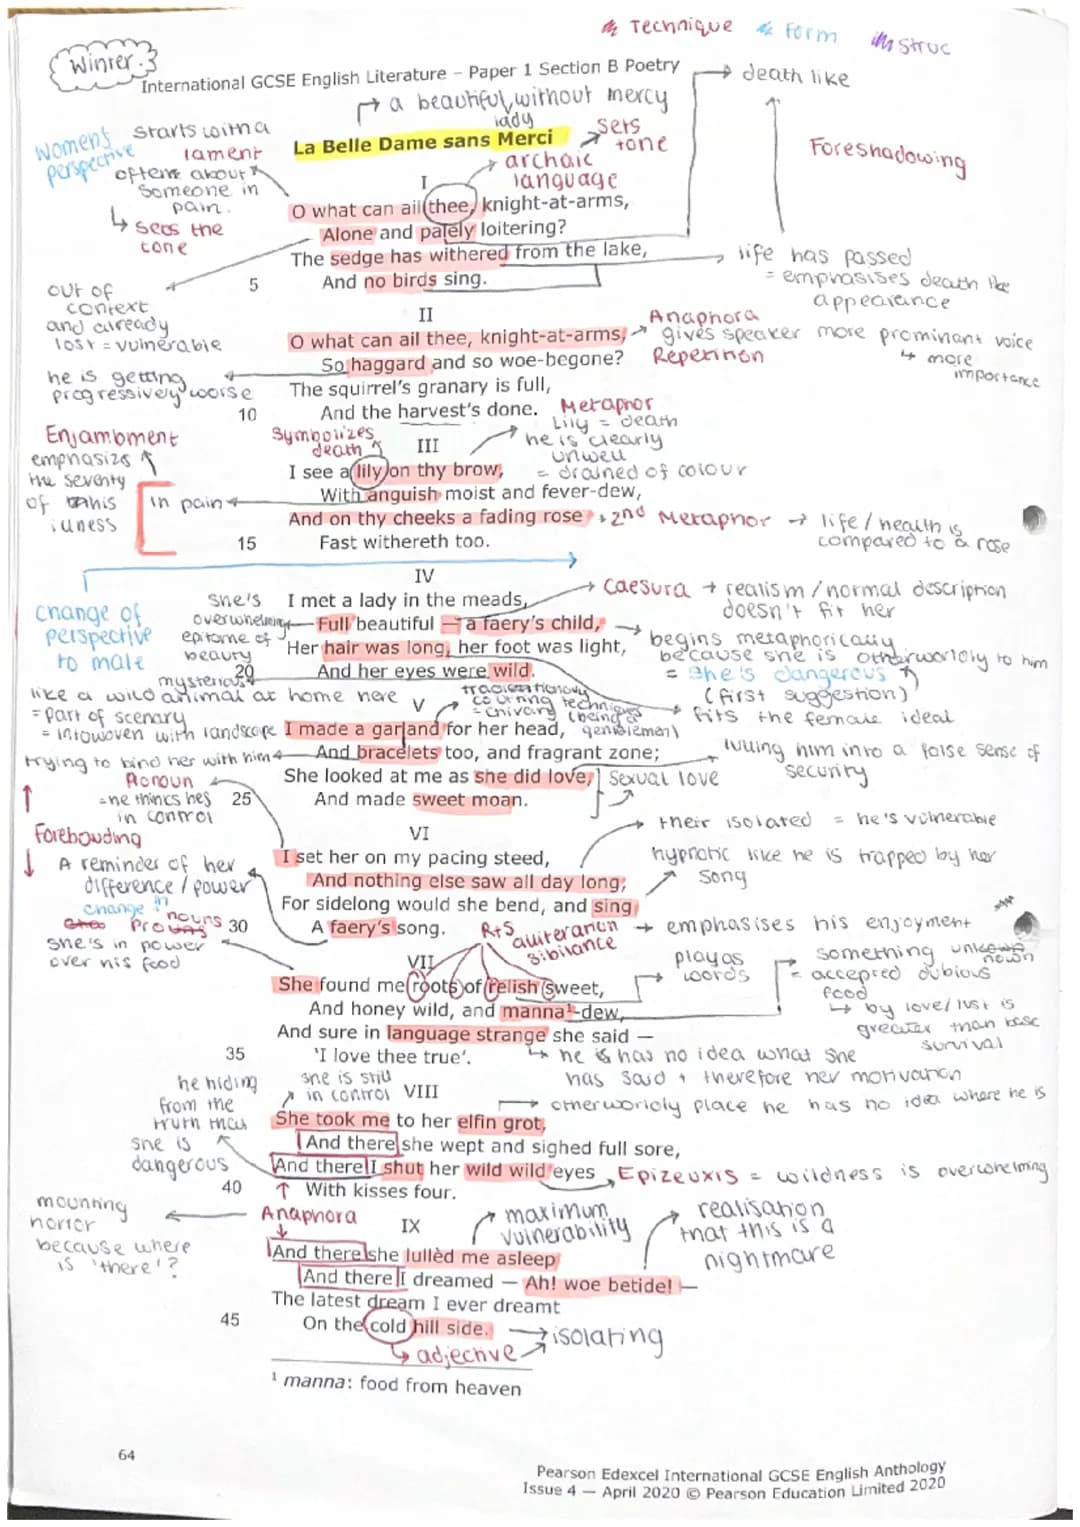 Technique Form Struc
Winter
International GCSE English Literature – Paper 1 Section B Poetry
death like
a beautiful lady without mercy
La Belle Dame sans Merci
sets tone
Foreshadowing
Women's perspective
Starts with a
lament
often about
someone in
pain.
sets the
tone
archaic
language
I
O what can ail thee, knight-at-arms,
Alone and palely loitering?
The sedge has withered from the lake,
5 And no birds sing.
life has passed
= emphasises death like
appearance
out of
context
and already
lost = vulnerable
II
O what can ail thee, knight-at-arms,
So haggard and so woe-begone?
The squirrel's granary is full,
10 And the harvest's done.
Anaphora
gives speaker more prominant voice
Repetition
more
importance
he is getting
progressively worse
Metaphor
Lily = death
he is clearly
unwell
= drained of colour
Enjambment
emphasizs
the severity
of this
illness
Symbolizes
death
III
I see a lily on thy brow,
With anguish moist and fever-dew,
And on thy cheeks a fading rose
15 Fast withereth too.
in pain
2nd Metaphor → life / health is
compared to a rose
change of
perspective
to male
IV
I met a lady in the meads,
Full beautiful — a faery's child,
Her hair was long, her foot was light,
20 And her eyes were wild.
she's
overwhelming
epitome of
beauty
mysterious
Caesura → realism / normal description
doesn't fit her
begins metaphorically
because she is otherworldly to him
= she is dangerous
(first suggestion)
fits the female ideal
like a wild animal at home here
= part of scenary
= intowoven with landscape
V
courting techniques
= chivalry (being a
gentleman)
I made a garland for her head,
And bracelets too, and fragrant zone;
She looked at me as she did love,
25 And made sweet moan.
trying to bind her with him
Pronoun
= he thinks hes
in control
lulling him into a false sense of
security
Sexual love
Forebouding
A reminder of her
difference / power
VI
I set her on my pacing steed,
And nothing else saw all day long;
For sidelong would she bend, and sing
30 A faery's song.
their isolated = he's vulnerable
hypnotic like he is trapped by her
song
change in
pronouns
she's in power
over his food
R+S
alliteration
sibilance
→ emphasises his enjoyment
VII
She found me roots of relish sweet,
And honey wild, and manna¹-dew,
And sure in language strange she said —
35 'I love thee true'.
play as
words
something unknown
= accepted dubious
food
↳ by love/lust is
greater than base
survival
he has no idea what she
has said + therefore her motivation
he hiding
from the
truth that
she is
dangerous
she is still
in control
VIII
She took me to her elfin grot,
And there she wept and sighed full sore,
And there I shut her wild wild eyes
40 With kisses four.
otherworldly place he has no idea where he is
Epizeuxis = wildness is overwhelming
mounting
horror
because where
is 'there'?
Anaphora
IX
And there she lullèd me asleep
And there I dreamed — Ah! woe betide! —
The latest dream I ever dreamt
45 On the cold hill side.
maximum
vulnerability
realisation
that this is a
nightmare
isolating
adjective
¹ manna: food from heaven
64
Pearson Edexcel International GCSE English Anthology
Issue 4 — April 2020 © Pearson Education Limited 2020